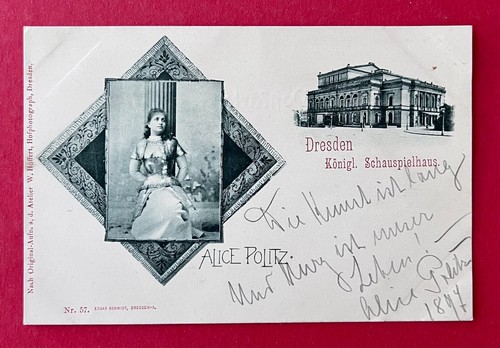 Nach Original-Aufn. a. d. Atelier W. Höffert, Hofphotograph, Dresden.
Dresden
Königl. Schauspielhaus.
ALICE POLITZ.
Die Kunst ist lang
Und kurz ist unser
Leben! —
Alice Politz
1897
Nr. 57. EDGAR SCHMIDT, DRESDEN-A.